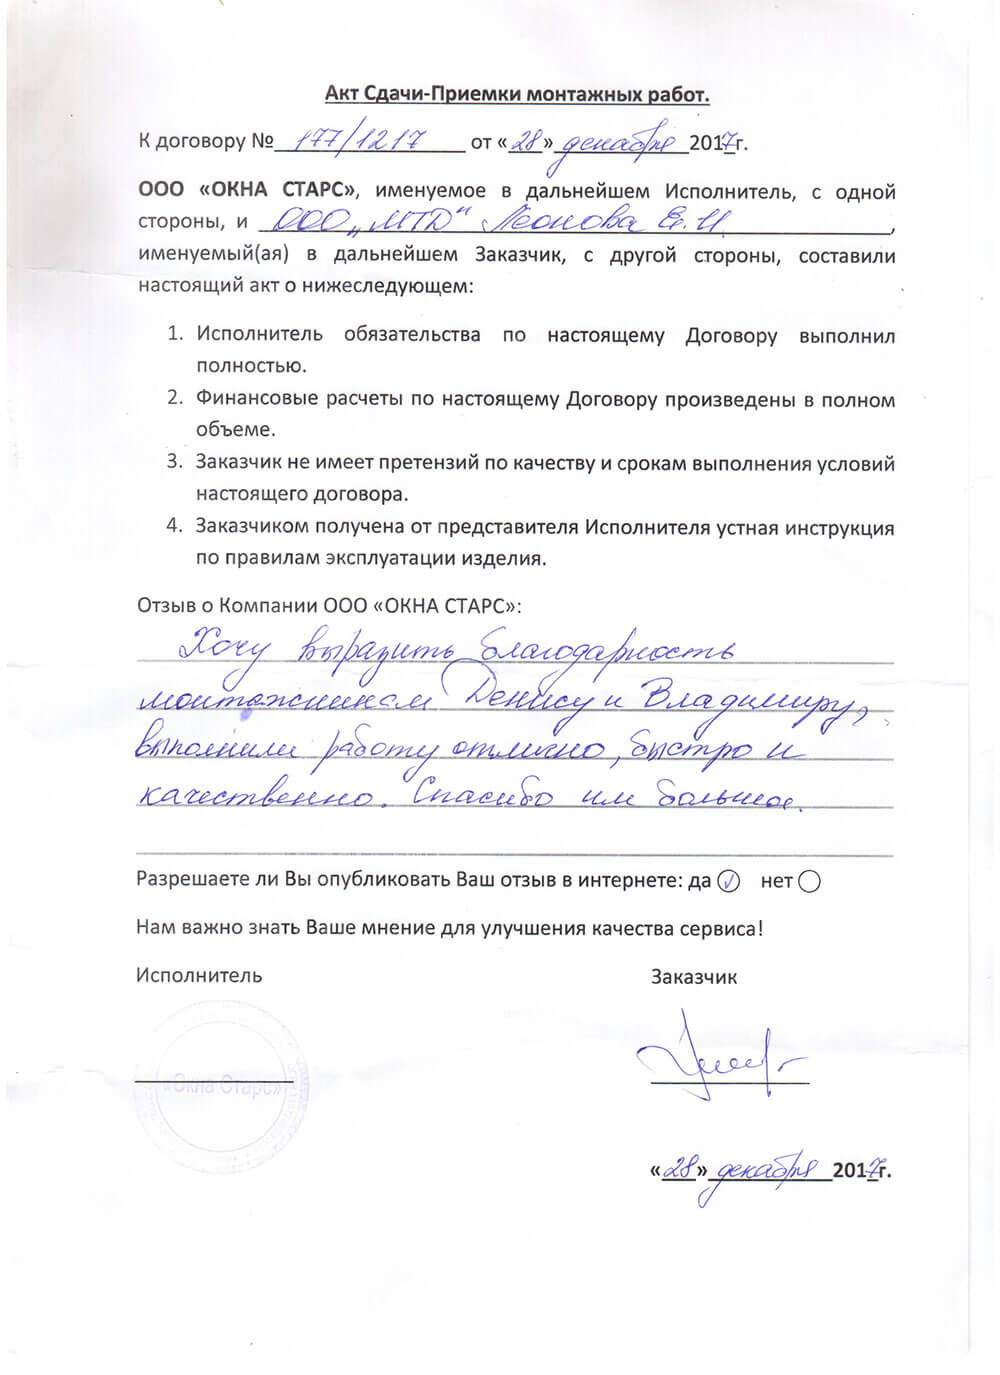 Акт Сдачи-Приемки монтажных работ.
К договору № 177/1217 от «28» декабря 2017г.
ООО «ОКНА СТАРС», именуемое в дальнейшем Исполнитель, с одной
стороны, и ООО „МТД" Леонова Е.И.,
именуемый(ая) в дальнейшем Заказчик, с другой стороны, составили
настоящий акт о нижеследующем:
1. Исполнитель обязательства по настоящему Договору выполнил
полностью.
2. Финансовые расчеты по настоящему Договору произведены в полном
объеме.
3. Заказчик не имеет претензий по качеству и срокам выполнения условий
настоящего договора.
4. Заказчиком получена от представителя Исполнителя устная инструкция
по правилам эксплуатации изделия.
Отзыв о Компании ООО «ОКНА СТАРС»:
Хочу выразить благодарность
монтажникам Денису и Владимиру,
выполнили работу отлично, быстро и
качественно. Спасибо им большое.
Разрешаете ли Вы опубликовать Ваш отзыв в интернете: да нет
Нам важно знать Ваше мнение для улучшения качества сервиса!
Исполнитель Заказчик
«Окна Старс»
«28» декабря 2017г.